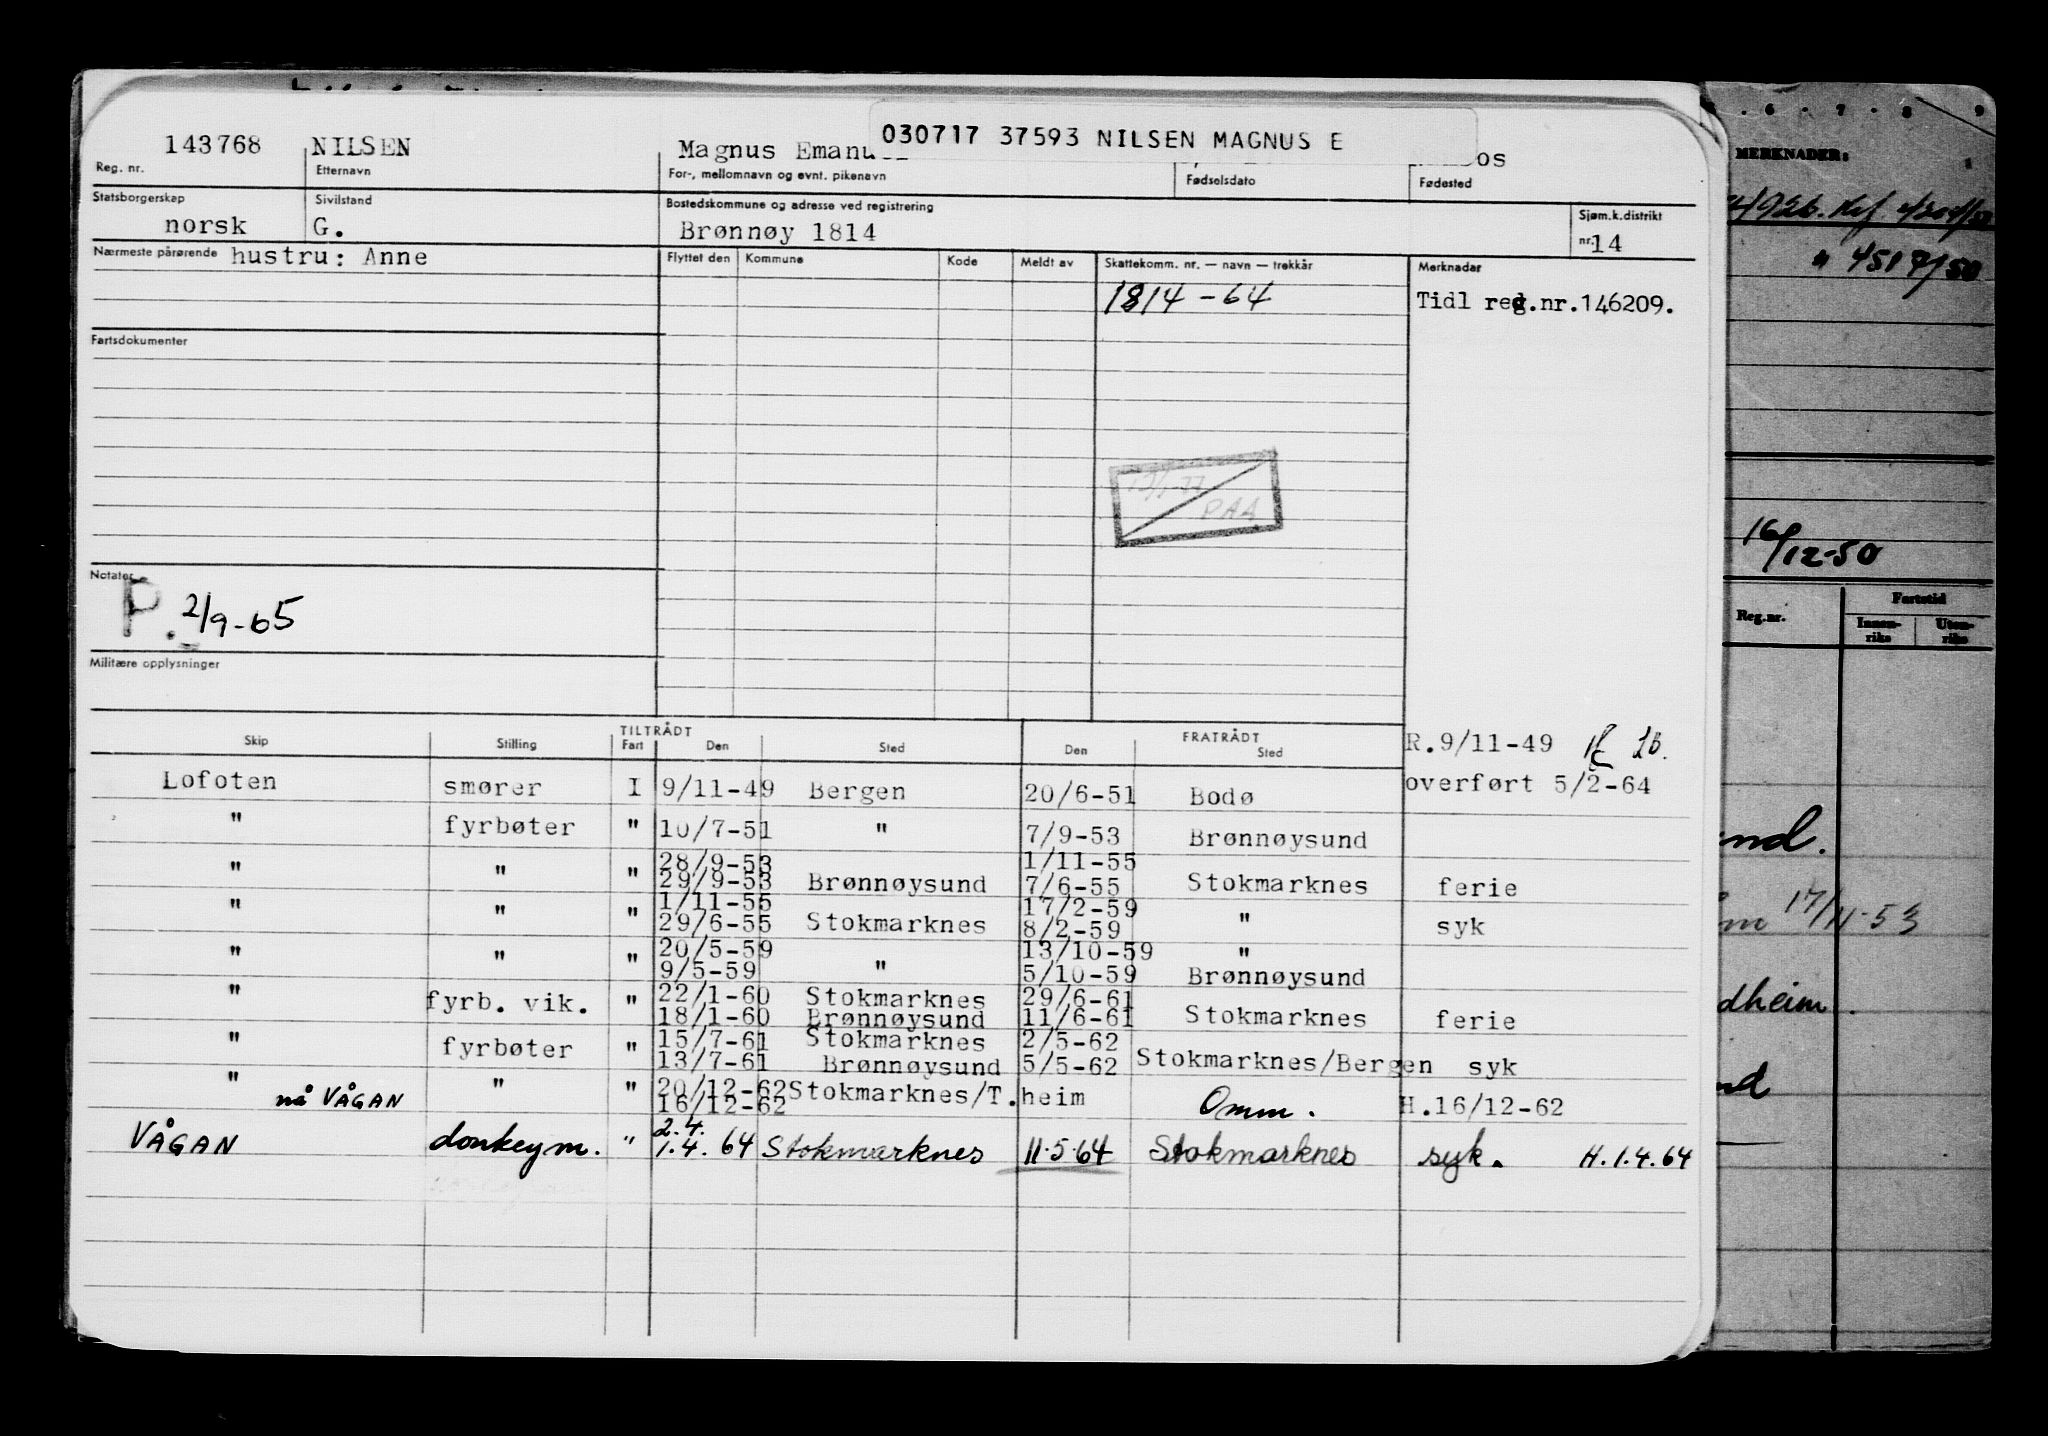 030717 37593 NILSEN MAGNUS E
143768 NILSEN Magnus Emanuel
Reg. nr. Etternavn For-, mellomnavn og evnt. pikenavn Fødselsdato Fødested
Statsborgerskap Sivilstand Bostedskommune og adresse ved registrering Sjøm.k.distrikt
norsk G. Brønnøy 1814 nr. 14
Nærmeste pårørende hustru: Anne Flyttet den Kommune Kode Meldt av Skattekomm. nr. — navn — trekkår Merknader
1814 - 64 Tidl reg.nr.146209.
Fartsdokumenter
PAA
Notater
P. 2/9-65
Militære opplysninger
TILTRÅDT FRATRÅDT
Skip Stilling Fart Den Sted Den Sted R.9/11-49
Lofoten smører I 9/11-49 Bergen 20/6-51 Bodø overført 5/2-64
" fyrbøter " 10/7-51 " 7/9-53 Brønnøysund
28/9-53 1/11-55
" " " 29/9-53 Brønnøysund 7/6-55 Stokmarknes ferie
1/11-55 17/2-59
" " " 29/6-55 Stokmarknes 8/2-59 " syk
20/5-59 13/10-59 "
" " " 9/5-59 " 5/10-59 Brønnøysund
22/1-60 Stokmarknes 29/6-61
" fyrb. vik. " 18/1-60 Brønnøysund 11/6-61 Stokmarknes ferie
15/7-61 Stokmarknes 2/5-62
" fyrbøter " 13/7-61 Brønnøysund 5/5-62 Stokmarknes/Bergen syk
20/12-62 Stokmarknes/T.heim
" nå VÅGAN " " 16/12-62 Omm. H.16/12-62
2.4.
VÅGAN donkeym. " 1.4. 64 Stokmarknes 11.5.64 Stokmarknes syk. H.1.4.64
6 - 7 - 8 9
MERKNADER:
" 4517/50
16/12-50
Reg.nr. Fartstid
Innenriks Utenriks
17/11-53